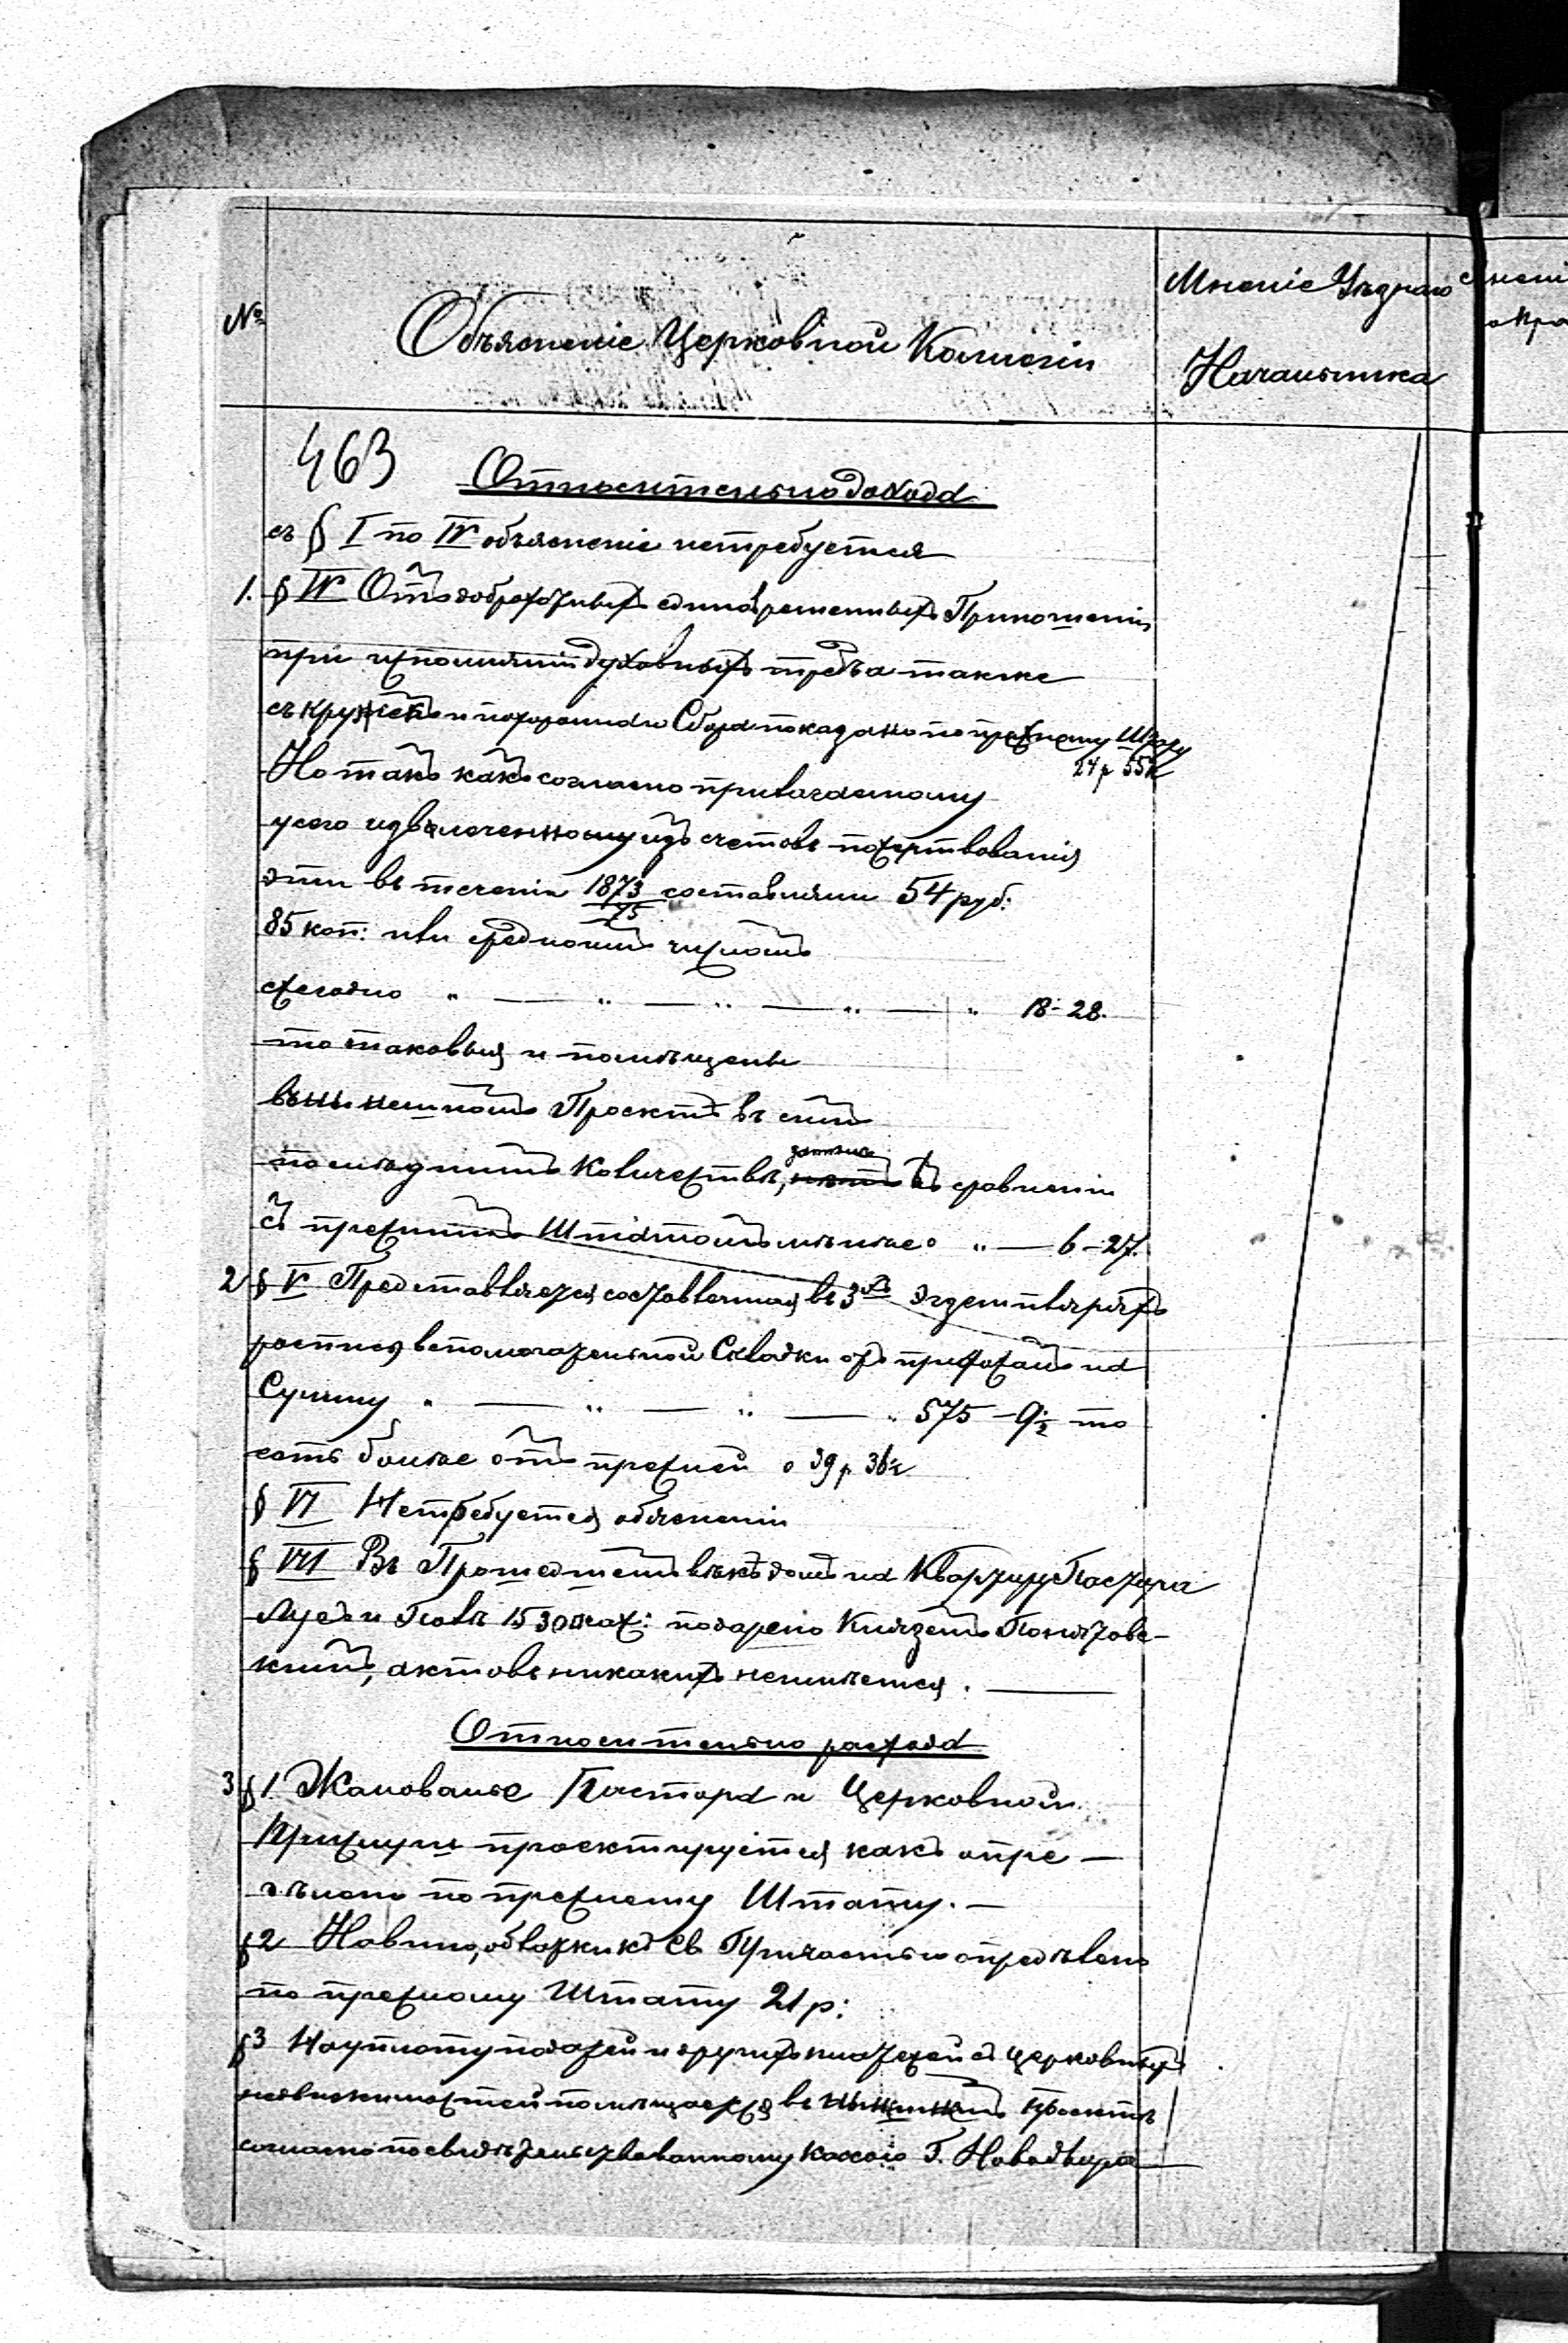 №
Объясненіе Церковной Коллегіи
Мненіе Уѣзднаго
Начальника
463
Относительно дохода
съ § I по IV объясненіе нетребуется
1. § IV Отъ доброхотныхъ единовременныхъ Приношеній
при исполненіи духовныхъ требъ а также
съ кружекъ и похороннаго Сбора показано по прежнему Штату
24 р 55 к
Но такъ какъ согласно прилагаемому
у сего извлеченному изъ счетовъ пожертвованія
эти въ теченіи 1873/75 составляли 54 руб:
85 коп: или среднимъ числомъ
ежегодно " — " — " — " — " 18-28.
то таковыя и помѣщены
въ нынешномъ Проектѣ въ семъ
последнимъ Количествѣ, въ сравненіи
съ прежнимъ Штатомъ менѣе о " — 6-27.
2 § V Представляется составленная въ 3хъ экземплярахъ
роспись вспомогательной Складки отъ прихожанъ на
Сумму " — " — " — " 575 - 9½ то
есть болѣе отъ прежней о 39 р 36 к
§ VI Нетребуется объясненіи
§ VII Въ Прошедшемъ вѣкѣ домъ на Квартиру Пастора
подарено Княземъ Понятовс-
кимъ, актовъ никакихъ неимѣется. —
Относительно расхода
3 § 1 Жалованье Пастора и Церковной
Прислуги проектируется какъ опре —
дѣлено по прежнему Штату. —
§ 2 На вино, облатки къ Св Причастью опредѣлено
по прежному Штату 21 р:
§ 3 На уплату податей и другихъ платежей съ церковныхъ
недвижимостей помѣщается въ нынешнемъ Проектѣ
согласно посвидѣтельствованному Г. Новодвора